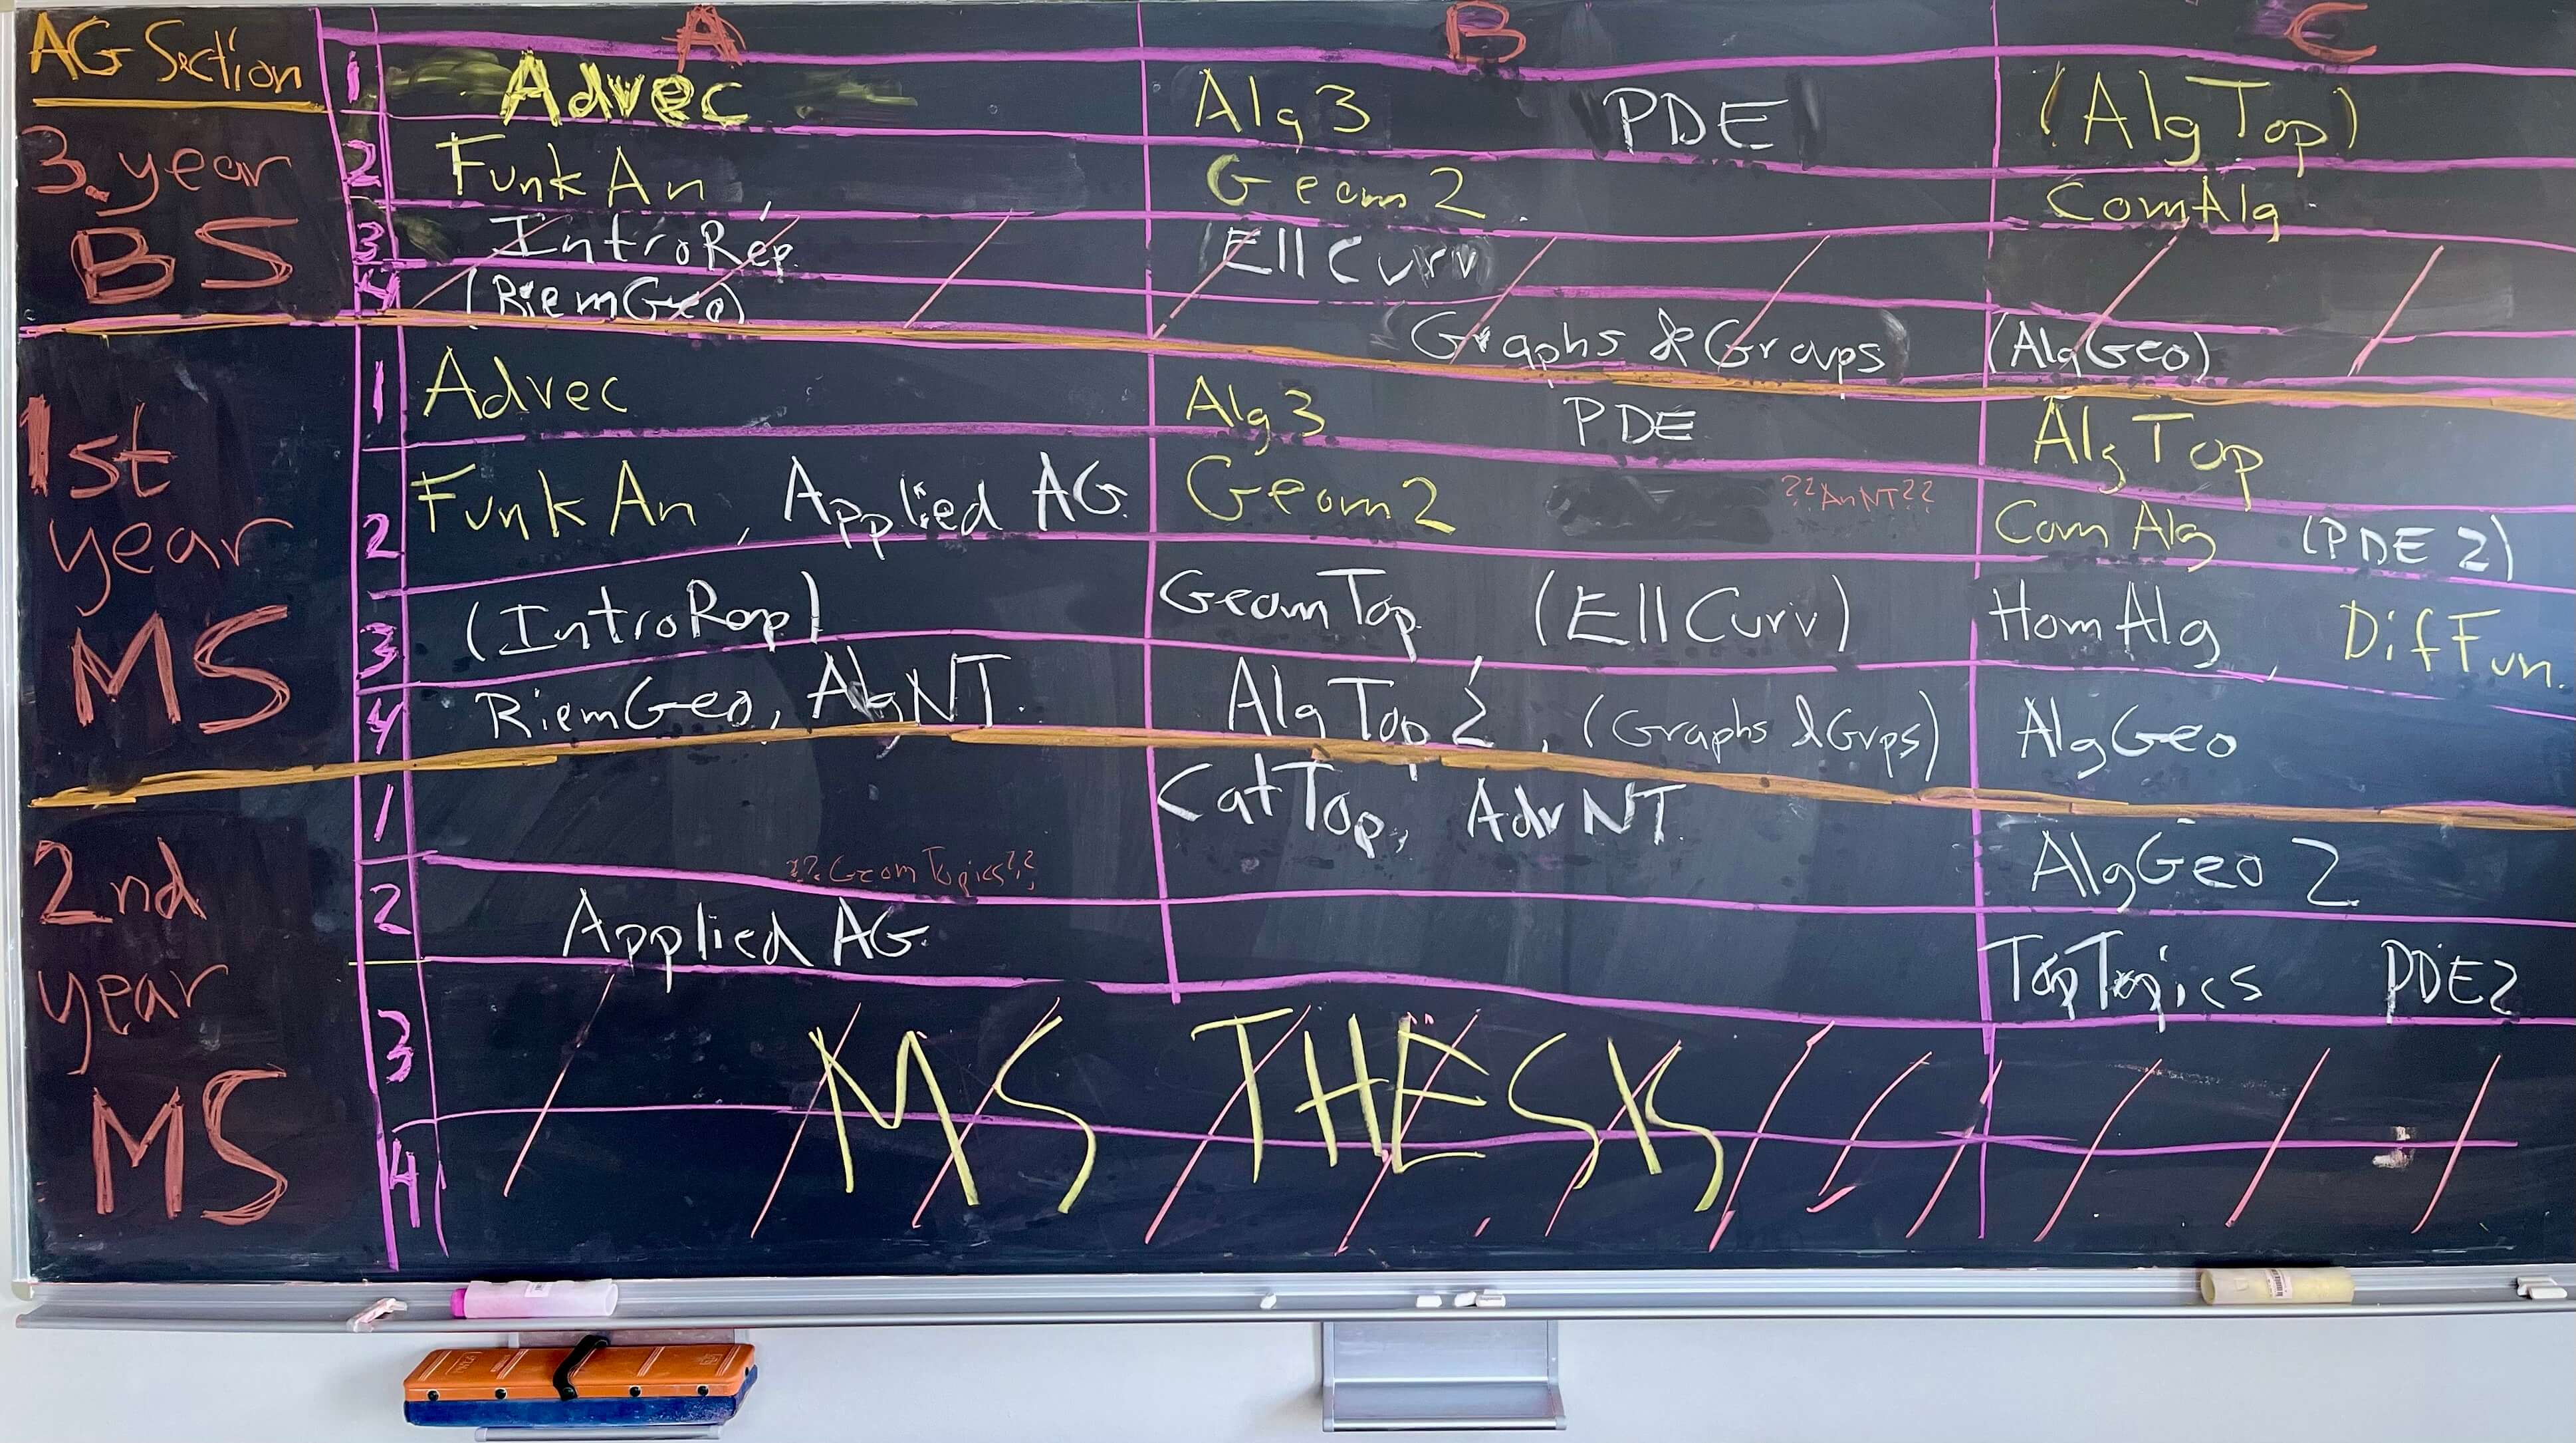 AG Section A B C
1 Advec Alg 3 PDE (AlgTop)
3. year 2 FunkAn, Geom 2 ComAlg
BS 3 IntroRep EllCurv
4 (RiemGeo) (Graphs & Groups) (AlgGeo)
1st 1 Advec Alg 3 PDE AlgTop
year 2 FunkAn, Applied AG Geom 2 ??AnNT?? ComAlg (PDE 2)
MS 3 (IntroRep) GeomTop (EllCurv) HomAlg, DifFun.
4 RiemGeo, AlgNT. AlgTop 2, (Graphs & Grps) AlgGeo
1 CatTop, AdvNT AlgGeo 2
2nd 2 ??GeomTopics??
Applied AG TopTopics PDE2
year 3 MS THESIS
MS 4